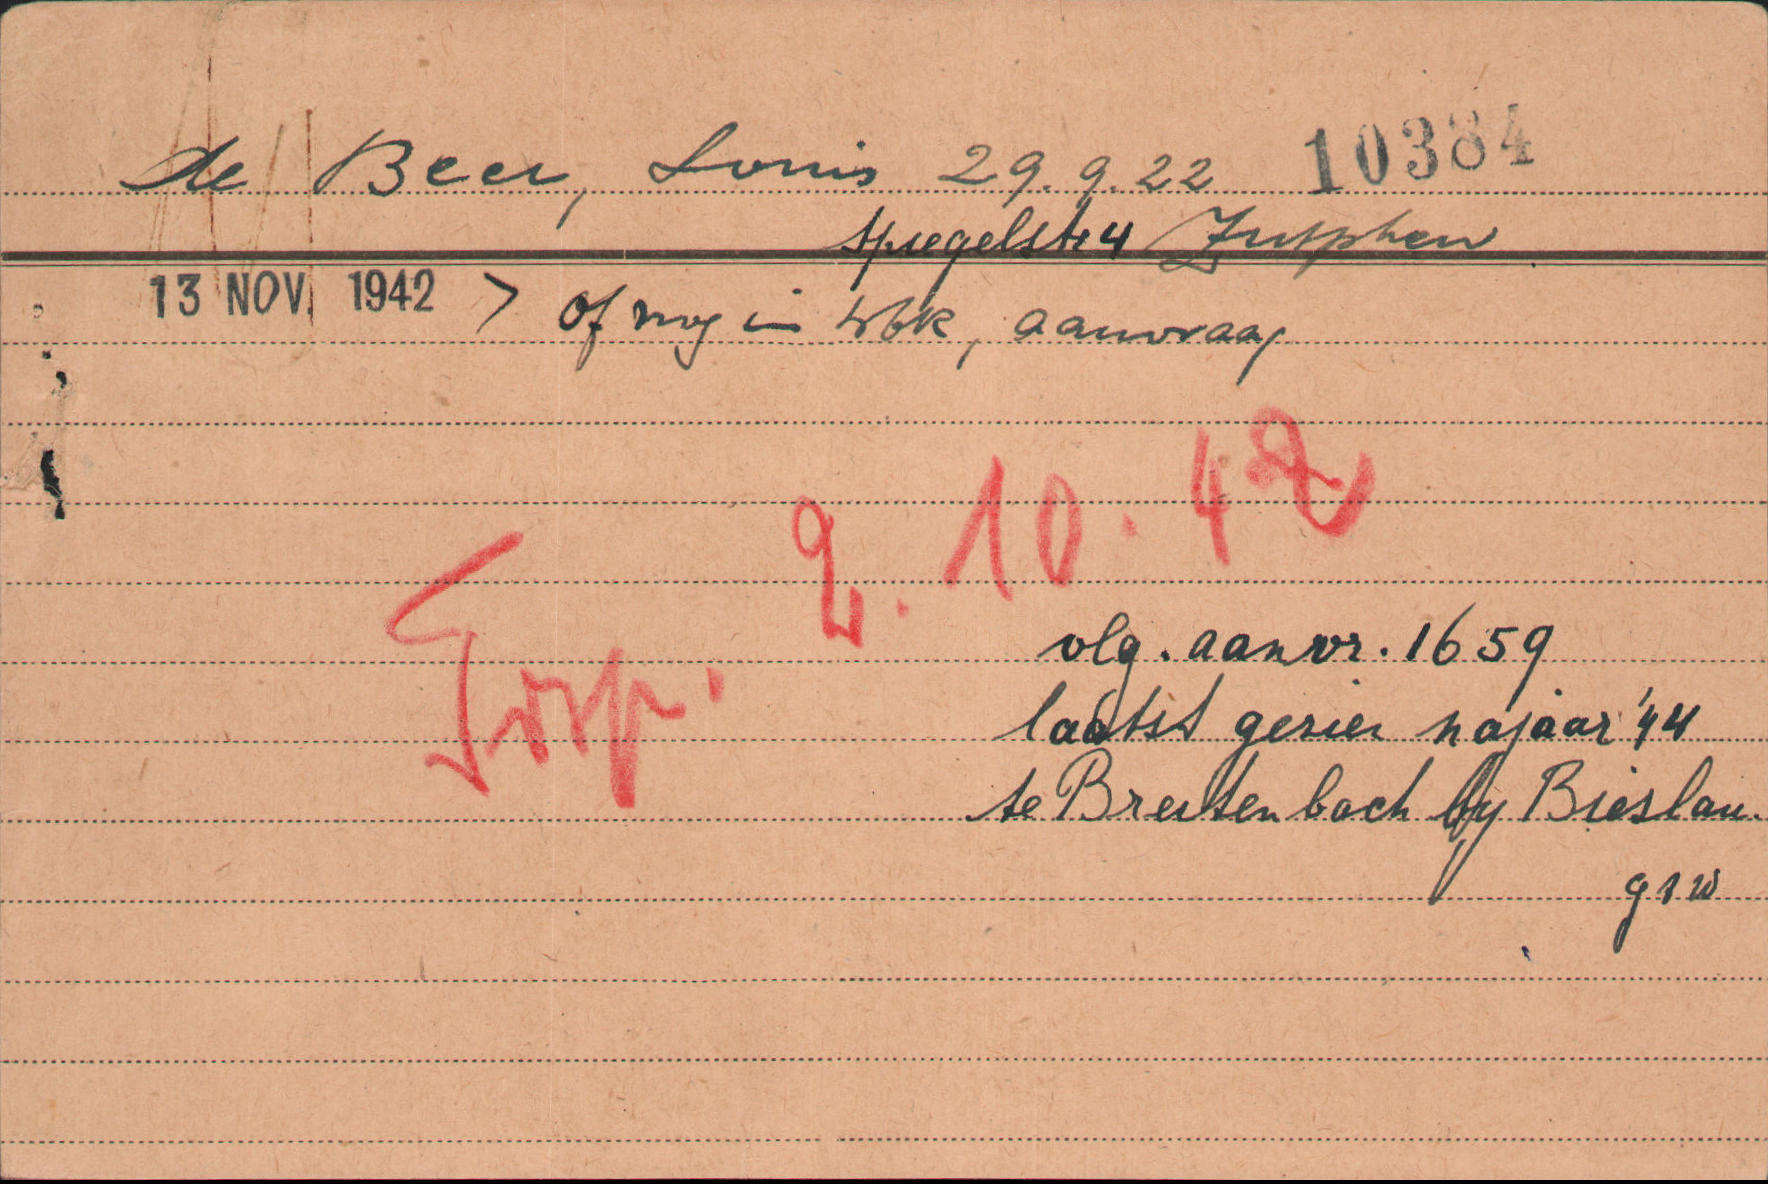 de Beer, Louis 29.9.22 10384
Spiegelstr 4 Zutphen
13 NOV. 1942 > of nog in Wbk, aanvraag
2.10.42
Exp.
volg. aanvr. 1659
laatst gezien najaar '44
te Breitenbach by Breslau.